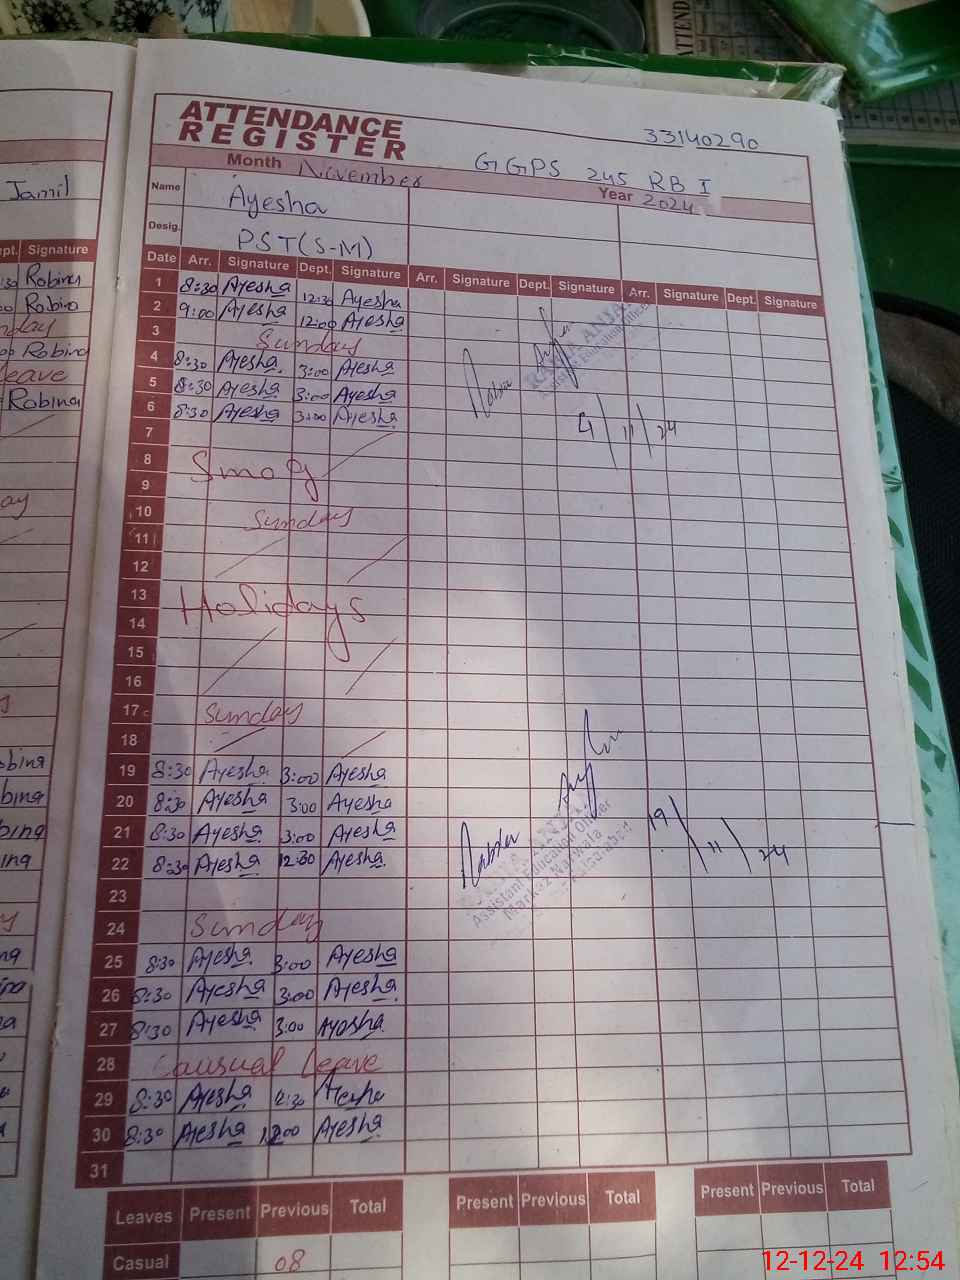 ATTEND
ATTENDANCE
REGISTER
33140290
Month November
GGPS 245 RB I
Year 2024
Name Ayesha
Desig. PST(S-M)
Date Arr. Signature Dept. Signature Arr. Signature Dept. Signature Arr. Signature Dept. Signature
1 8:30 Ayesha 12:30 Ayesha
2 9:00 Ayesha 12:00 Ayesha
3 Sunday
4 8:30 Ayesha 3:00 Ayesha
5 8:30 Ayesha 3:00 Ayesha
6 8:30 Ayesha 3:00 Ayesha
4/11/24
7
8 Smog
9
10 Sunday
11
12
13 Holidays
14
15
16
17 Sunday
18
19 8:30 Ayesha 3:00 Ayesha
20 8:30 Ayesha 3:00 Ayesha
21 8:30 Ayesha 3:00 Ayesha
22 8:30 Ayesha 12:30 Ayesha
19/11/24
Assistant Education Officer
Markaz Narwala
Faisalabad
23
24 Sunday
25 8:30 Ayesha 3:00 Ayesha
26 8:30 Ayesha 3:00 Ayesha
27 8:30 Ayesha 3:00 Ayesha
28 Causual Leave
29 8:30 Ayesha Ayesha
30 8:30 Ayesha 12:00 Ayesha
31
Leaves Present Previous Total Present Previous Total Present Previous Total
Casual 08
Jamil
Signature
Robina
Robina
Robina
Leave
Robina
12-12-24 12:54